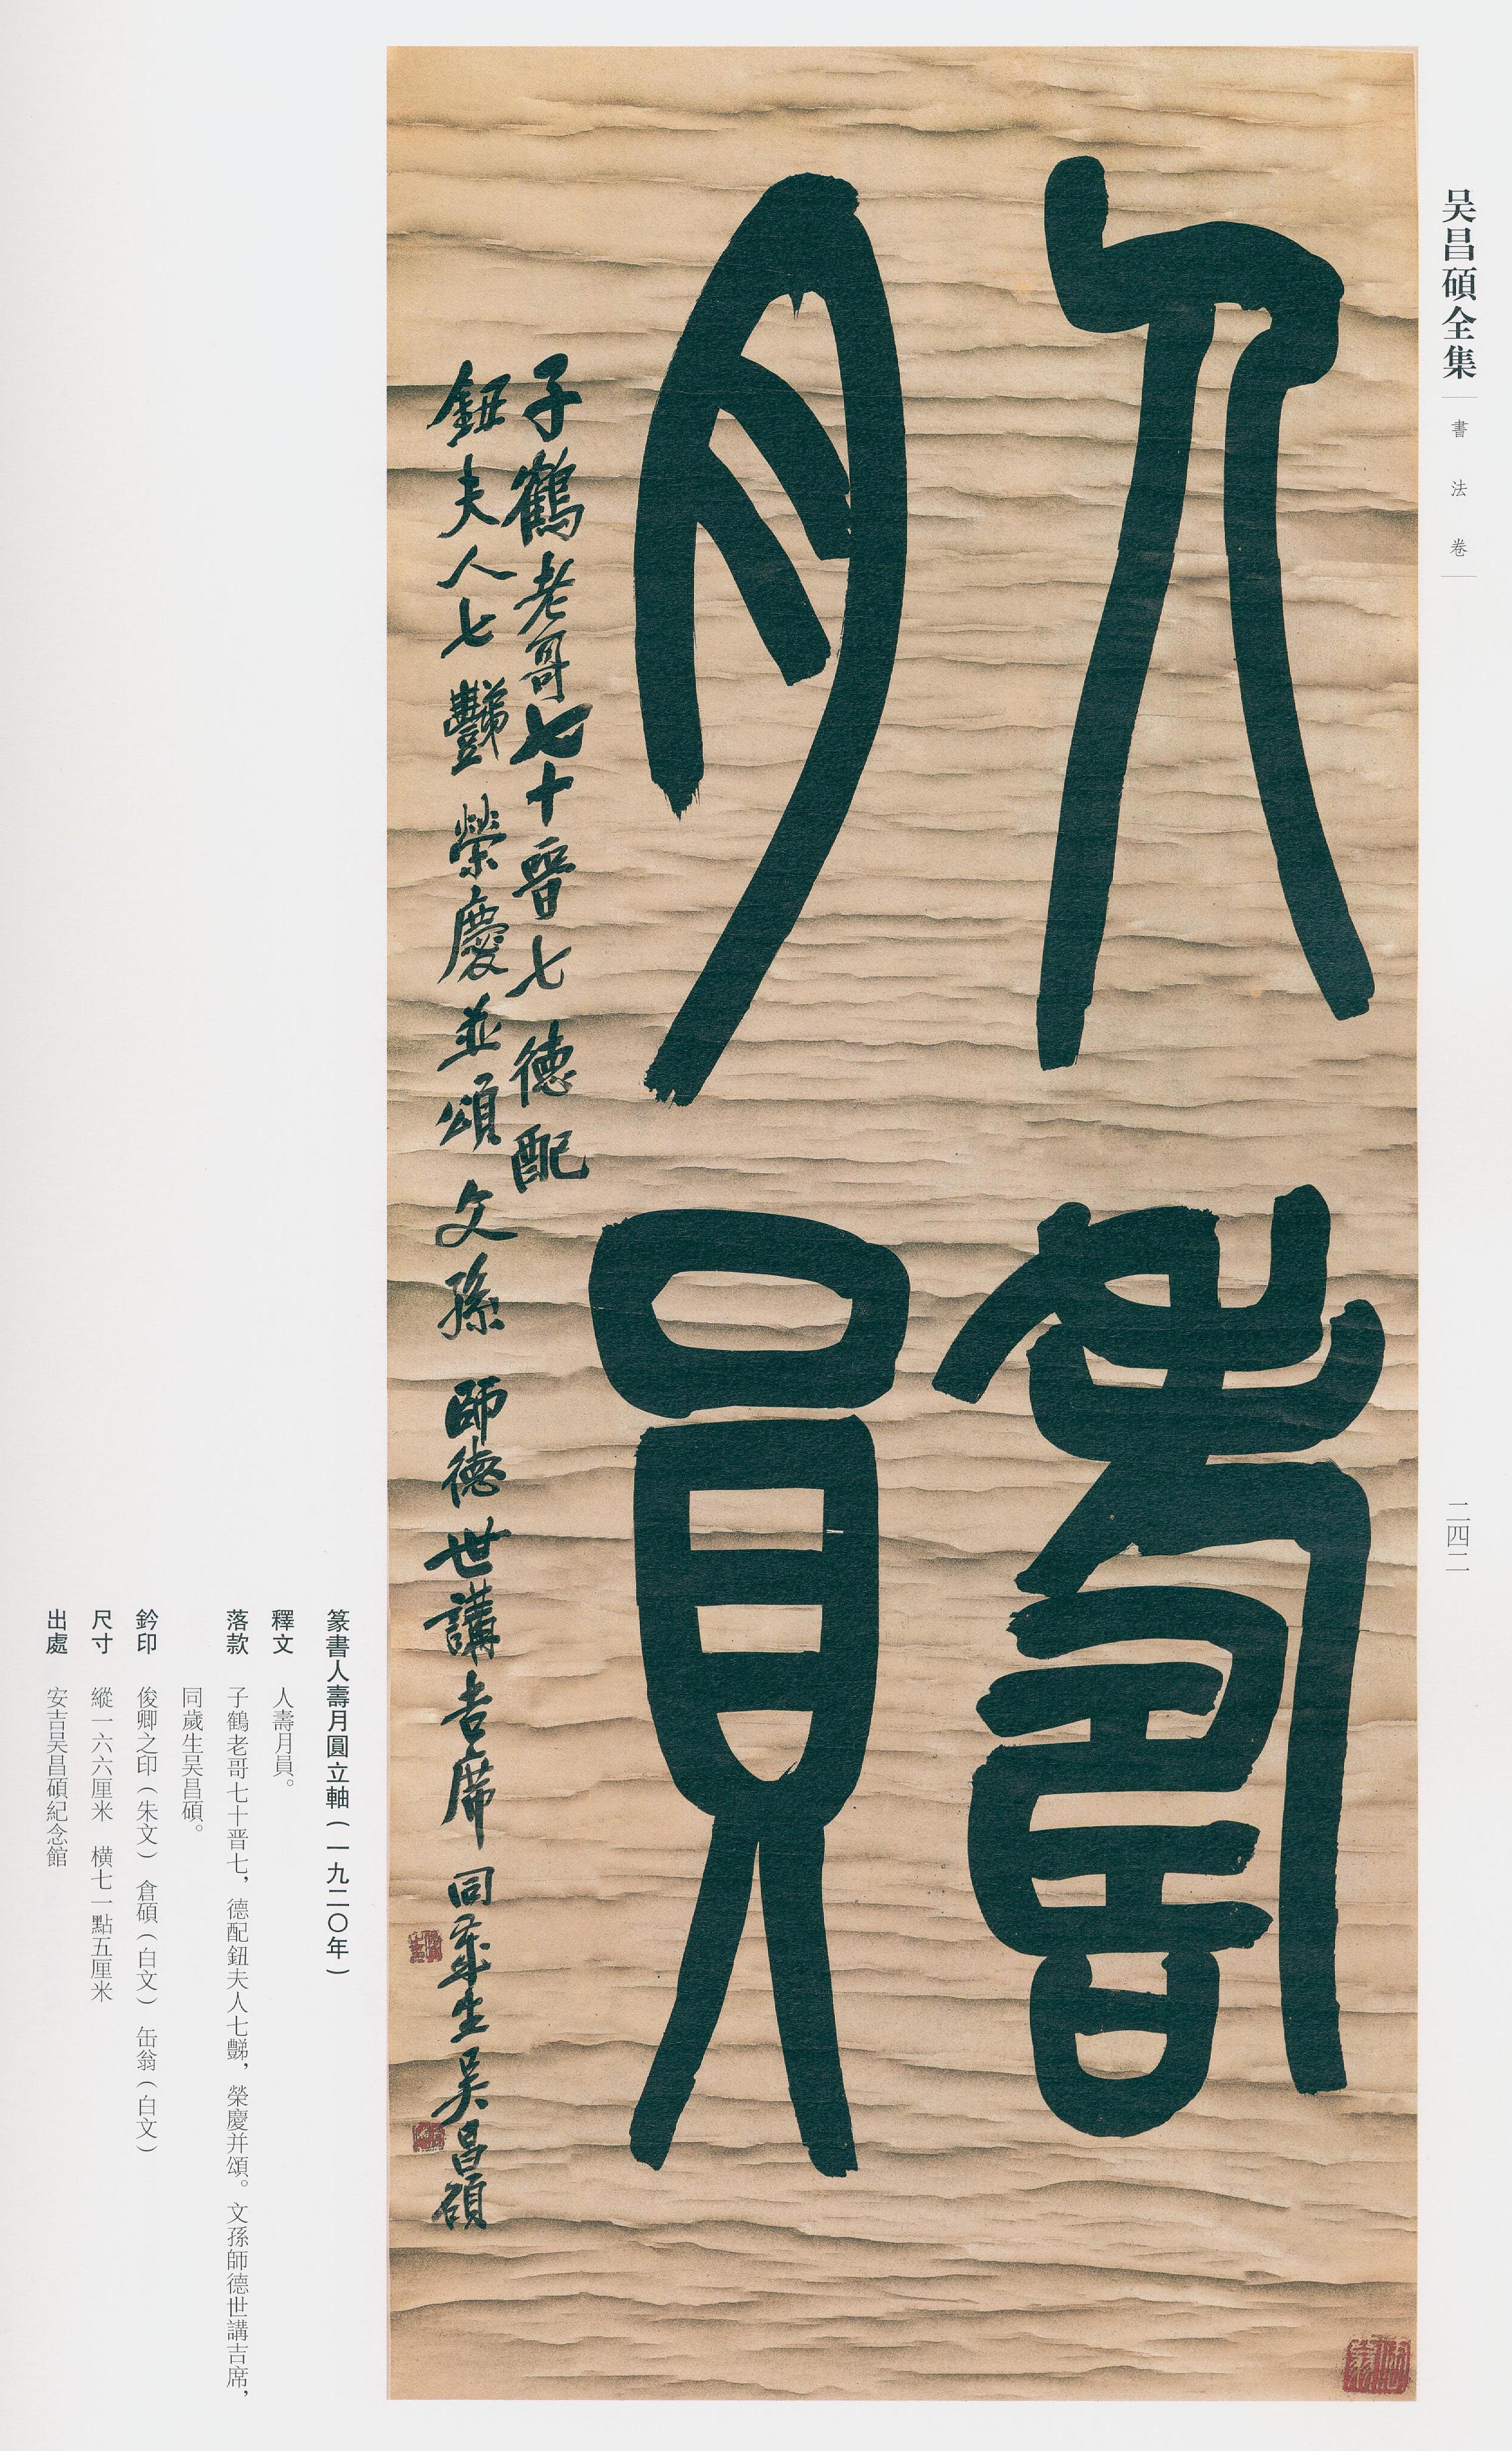 吴昌碩全集
書法卷
二四二
人壽
月員
子鶴老哥七十晋七德配
鈕夫人七豑榮慶並頌文孫師德世講吉席同歲生吴昌碩
篆書人壽月圓立軸（一九二〇年）
釋文 人壽月員。
落款 子鶴老哥七十晋七，德配鈕夫人七豑，榮慶并頌。文孫師德世講吉席，
同歲生吴昌碩。
鈐印 俊卿之印（朱文） 倉碩（白文） 缶翁（白文）
尺寸 縱一六六厘米 横七一點五厘米
出處 安吉吴昌碩紀念館